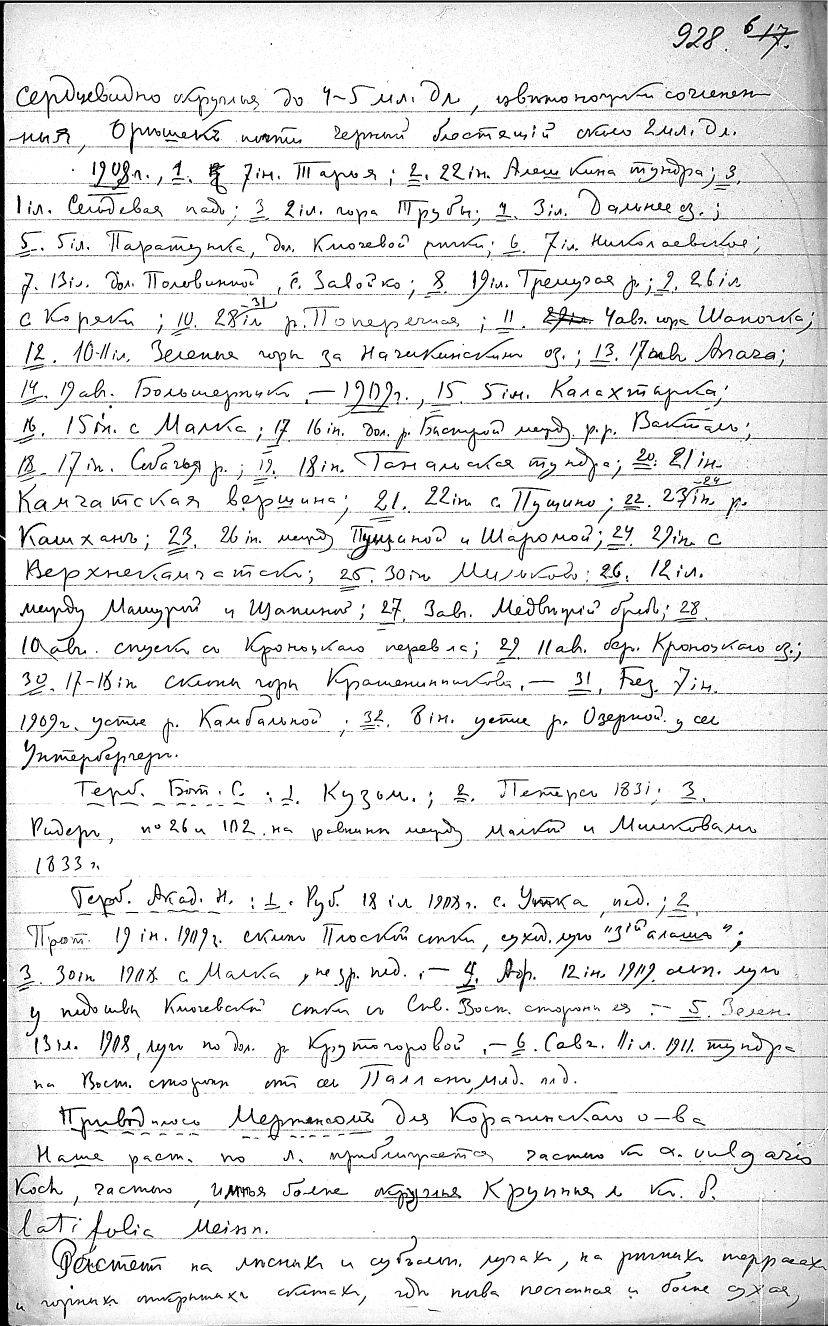 928. 6 17.
Сердцевидно округлыя до 4-5 мл. дл.,
ния, Орѣшекъ почти черный блестящій около 2 мл. дл.
1908г., 1. 7 iн. Тарья; 2. 22 iн. Алешкина тундра; 3.
1 iл. Сельдевая падь; 3 2 iл. гора Трубы; 4. 3 iл. Дальнее оз.;
5. 5 iл. Паратунка, дол. Ключевой рѣчки; 6. 7 iл. Николаевское;
7. 13 iл. дол. Половинной, с. Завойко; 8. 19 iл. Гремучая р.; 9. 26 iл.
с Коряки; 10. 28-31 iл р. Поперечная; 11. 29 iл. 4 авг. гора Шапочка;
12. 10-11 iл. Зеленые горы за Начикинскимъ оз.; 13. 17 авг. Апача;
14. 19 ав. Большерѣцкъ. — 1909г., 15. 5 iн. Калахтырка;
16. 15 iн. с Малка; 17 16 iн. дол. р. Быстрой между р.р. Вактанъ;
18. 17 iн. Собачья р.; 19. 18 iн. Ганальская тундра; 20. 21 iн.
Камчатская вершина; 21. 22 iн с. Пущино; 22. 23-24 iн. р.
Кашханъ; 23. 26 iн. между Пущиной и Шаромой; 24. 29 iн. с
Верхнекамчатскъ; 25. 30 iн Мильково; 26. 12 iл.
между Машурой и Щапиной; 27. 3 ав. Медвѣжій гребень; 28.
10 ав. спускъ съ Кроноцкаго перевла; 29 11 ав. бер. Кроноцкаго оз.;
30. 17-18 iл склоны горы Крашенинникова. — 31. 7 iн.
1909г. устье р. Камбальной; 32. 8 iн. устье р. Озерной у сел
Унтербергеръ.
Герб. Бот. С.: 1. Кузьм.; 2. Петерсъ 1831; 3.
Ридеръ, no 26 и 102. на равнинѣ между Малкой и Мильковымъ
1833 г.
Герб. Акад. Н.: 1. Руб. 18 iл 1908г. с. Утка, пед.; 2
Прот. 19 iн. 1909г. склонъ Плоской сопки, суход. лугъ
3. 30 iн 1908 с Малка, незр. пед. — 4. 12 iн. 1909. альп. лугъ
у подошвы Ключевской сопки съ Сѣв. Вост. стороны ея. — 5. Зелен.
13 iл. 1908, лугъ по дол. р Крутогоровой. — 6. Савч. 11 iл. 1911. тундра
на Вост. сторонѣ отъ сел Палланъ, млд. плд.
Приводилось Мертенсомъ для Корагинскаго о-ва
Наше раст. по л. приближается частью къ α. vulgaris
Koch, частью, имѣя болѣе округлыя Крупныя л къ β.
latifolia Meisn.
Растетъ на лѣсныхъ и субальп. лугахъ, на рѣчныхъ террасахъ
и горныхъ открытыхъ скатахъ, гдѣ почва песчаная и болѣе сухая,